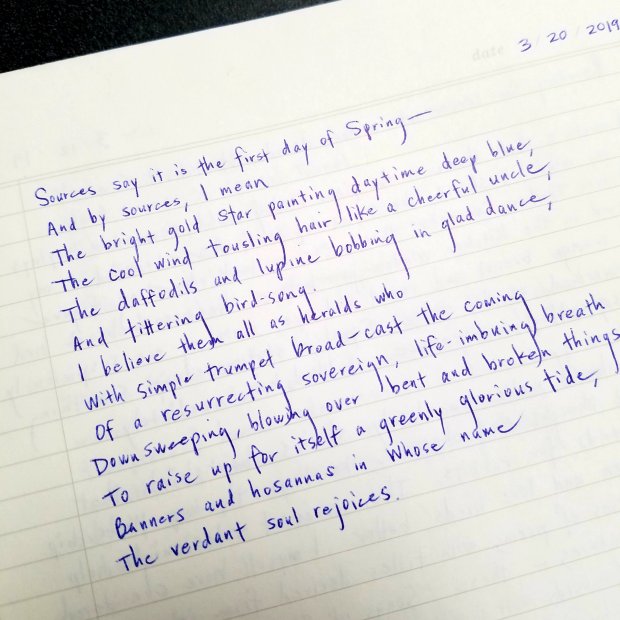 date 3 / 20 / 2019
Sources say it is the first day of Spring—
And by sources, I mean
The bright gold star painting daytime deep blue,
The cool wind tousling hair like a cheerful uncle,
The daffodils and lupine bobbing in glad dance,
And tittering bird-song.
I believe them all as heralds who
With simple trumpet broad-cast the coming
Of a resurrecting sovereign, life-imbuing breath
Downsweeping, blowing over bent and broken things
To raise up for itself a greenly glorious tide,
Banners and hosannas in Whose name
The verdant soul rejoices.